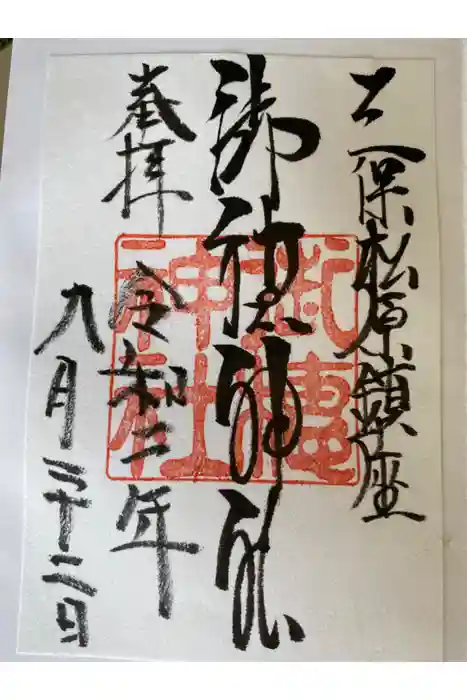 三保松原鎮座
御穂神社
奉拝 令和二年
九月二十二日